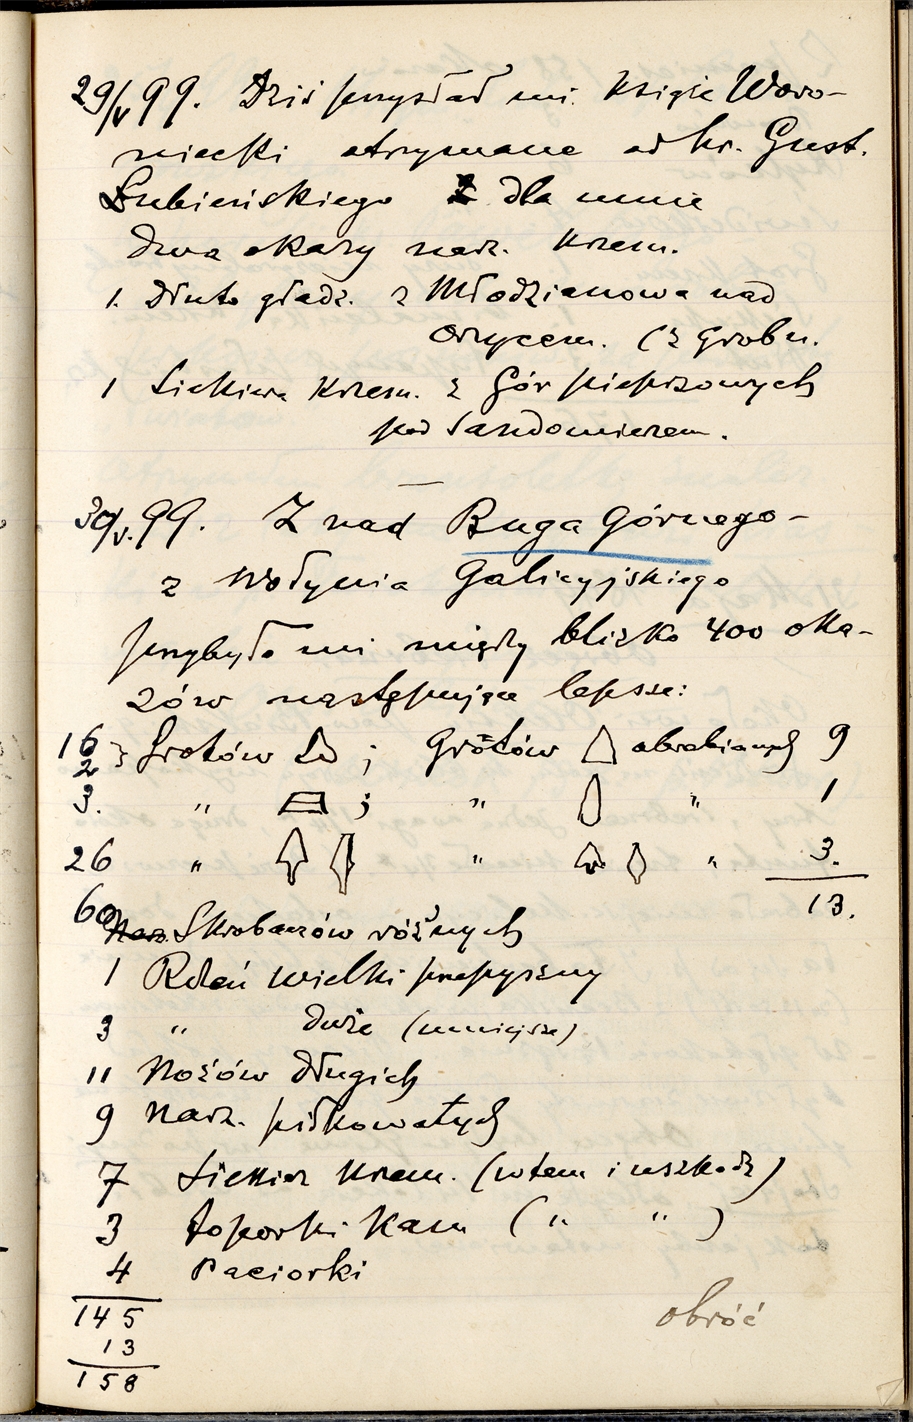 29/V 99. Dziś przysłał mi Książe Woro-
niecki otrzymane od hr. Gust.
Łubieńskiego dla mnie
dwa okazy narz. Krzem.
1. Dłuto gładz. z Młodzianowa nad
Orzycem. (z Grobu.
1 Siekiera Krzem. z Gór pieprzowych
pod Sandomierzem.
30/V. 99. Z nad Buga Górnego -
z Wołynia Galicyjskiego
przybyło mi między blizko 400 oka-
zów następujące lepsze:
16 Grotów ; Grotów obrabianych 9
2
3. " ; " " 1
26 " " " 3.
13.
60 Skrobaczów różnych
1 Rdzeń Wielki przepyszny
3 " duże (mniejsze)
11 Nożów długich
9 Narz. piłkowatych
7 Siekier Krzem. (w tem i uszkodz)
3 toporki Kam (" ")
4 Paciorki
145
13
158
obróć